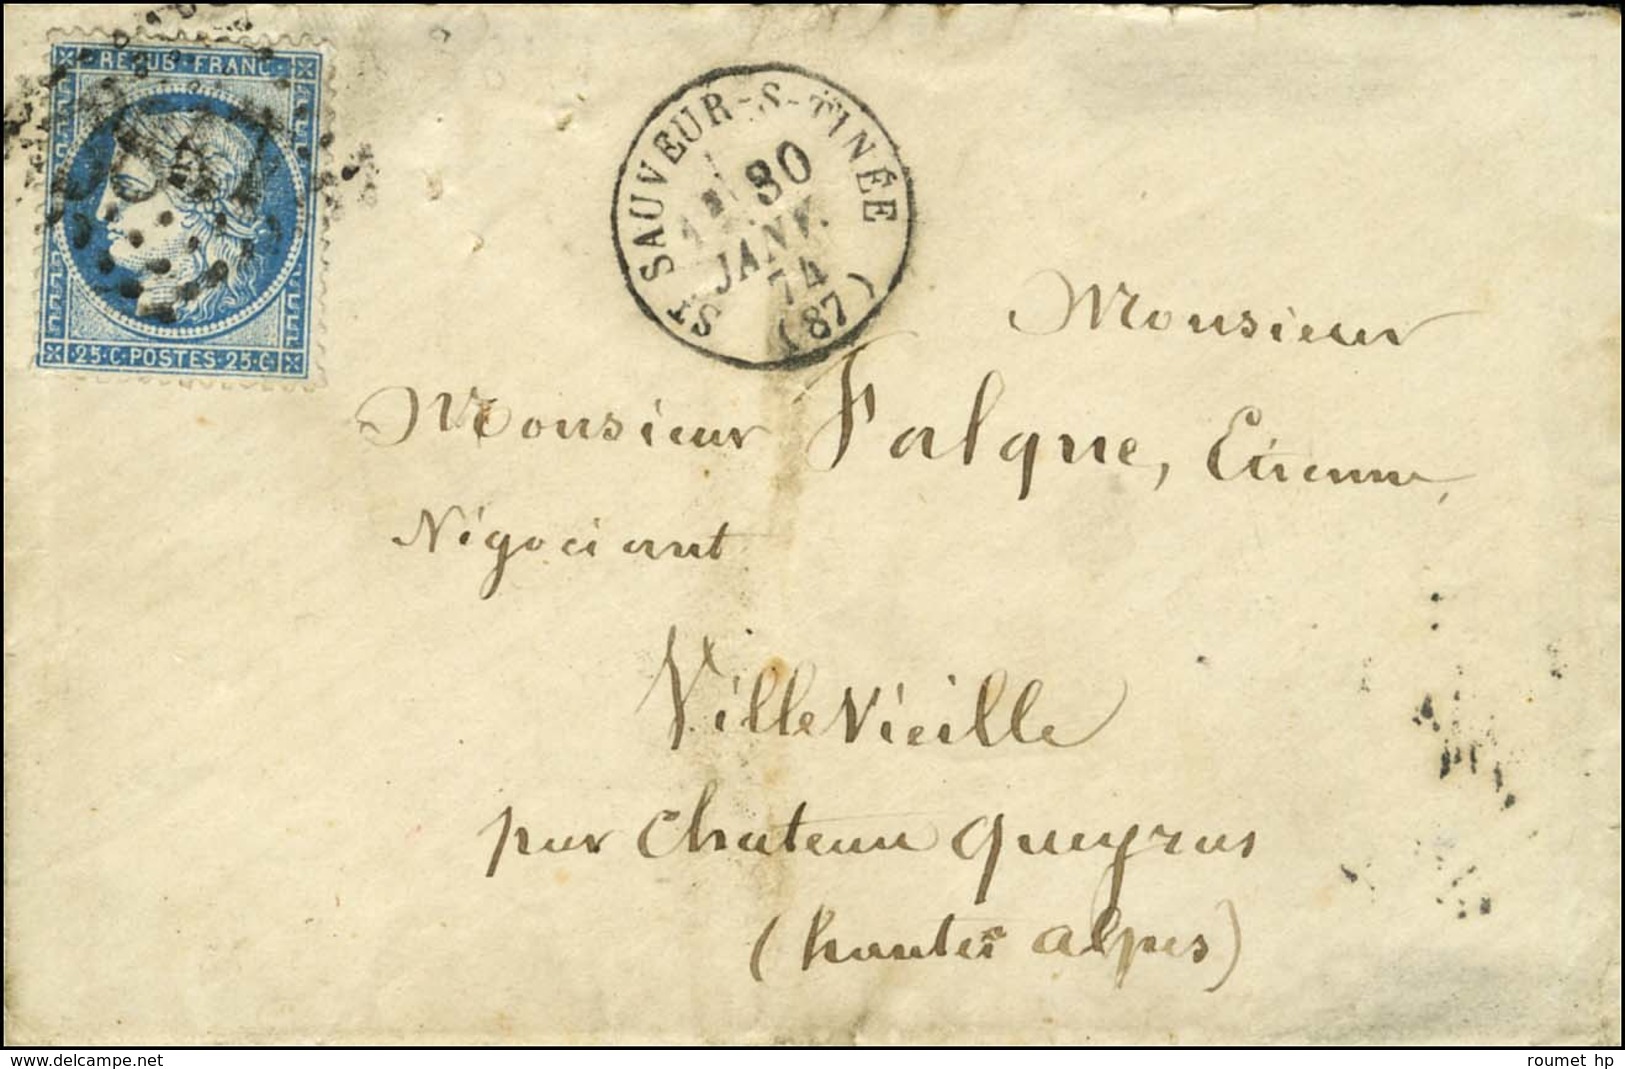 REPUB · FRANC ·
· 25 · C · POSTES · 25 · C ·
ST SAUVEUR-S-TINÉE
30
JANV.
74
(87)
Monsieur
Monsieur Falque, Etienne,
Négociant
Ville Vieille
par Chateau queyras
(hautes alpes)
roumet hp